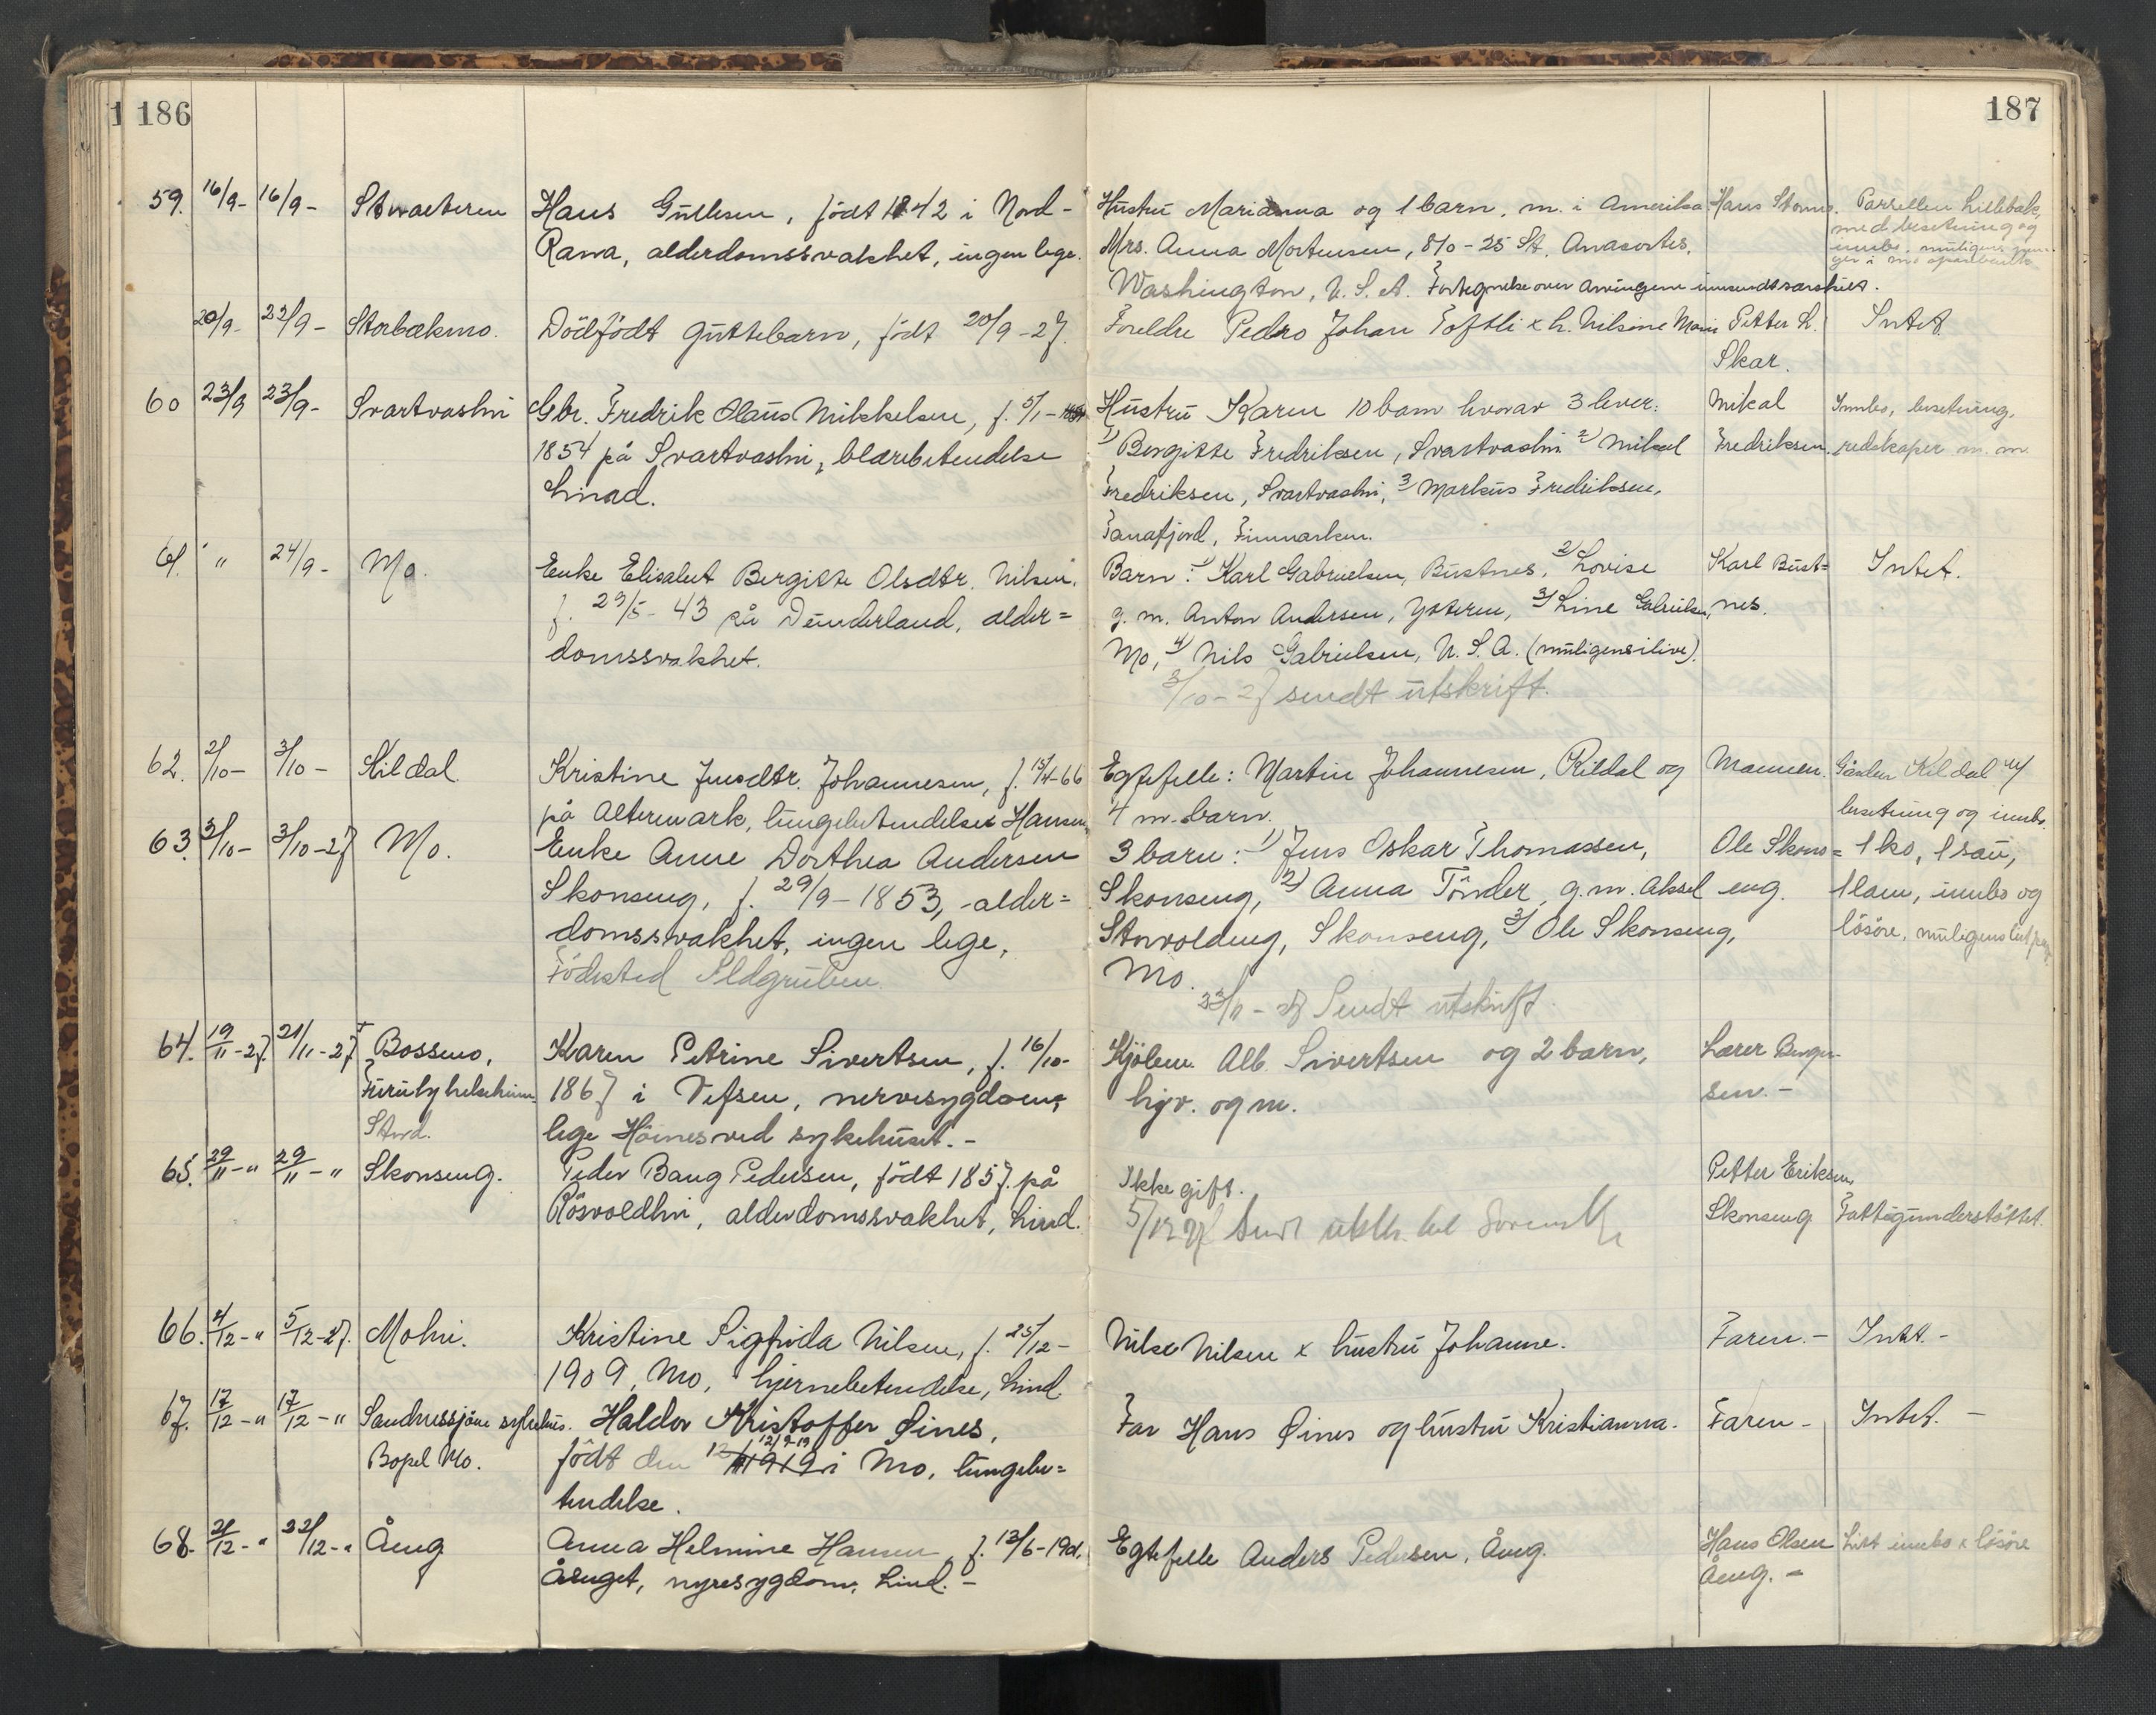 186
59. 16/9- 16/9- Storsæteren Hans Gullesen, født 1842 i Nord-
Rana, alderdomssvakhet, ingen lege.
20/9- 22/9- Storbækmo. Dödfödt guttebarn, født 20/9-27.
60 23/9 23/9- Svartvashei Gbr. Fredrik Olaus Mikkelsen, f. 5/1-
1854 på Svartvashei, blærebetendelse
Linad.
61. " 24/9- Mo. Enke Elisabet Bergitte Olsdtr. Nilsen,
f. 29/5-43 på Dunderland, alder=
domssvakhet.
62. 2/10- 3/10- Kildal Kristine Jensdtr. Johannesen, f. 15/4-66
på Altermark, lungebetendelse Hansen
63. 3/10- 3/10-27 Mo. Enke Anne Dorthea Andersen
Skonseng, f. 29/9-1853, -alder=
domssvakhet, ingen lege,
Födested Ildgruben.
64. 19/11-27. 21/11-27 Bossmo, Karen Petrine Sivertsen, f. 16/10-
Furuly helseheim 1867 i Vefsen, nervesygdom,
Stord. lege Höines ved sykehuset.-
65. 29/11-" 29/11-" Skonseng. Peder Bang Pedersen, født 1857. på
Rösvoldhei, alderdomssvakhet, Lind.
66. 4/12-" 5/12-27. Mohei. Kristine Sigfrida Nilsen, f. 25/12-
1909, Mo, hjernebetendelse, Lind.
67. 17/12-" 17/12-" Sandnessjöen sykehus. Haldor Kristoffer Øines,
12/9-19
Bopel Mo. født den i Mo, lungebe=
tendelse.
68. 21/12-" 22/12-" Åeng Anna Helmine Hansen, f. 13/6-1901,
Åenget, nyresygdom, Lind.-
187
Hustru Marianna og 1 barn, m. i Amerika Hans Storms. Parsellen Lillebæk,
med besetning og
Mrs. Anna Mortensen, 810-25 St, Anacortes, innbo, muligens
Washington, U.S.A. Fortegnelse over arvingene innsendt særskilt.
Foreldre Pedro Johan Toftli x h. Nilsine Marie Petter L. Intet.
Skar.
Hustru Karen 10 barn hvorav 3 lever: Mikal Innbo, besetning,
1) Bergitte Fredriksen, Svartvashei 2) Mikal Fredriksen. redskaper m. m.
Fredriksen, Svartvashei, 3 Markus Fredriksen,
Tanafjord, Finnmarken.
Barn: 1) Karl Gabrielsen, Bustnes, 2) Lovise Karl Bust= Intet.
g. m. Anton Andersen, Ytteren, 3) Line Gabrielsen, nes.
Mo, 4) Nils Gabrielsen, U.S.A. (muligens ilive).
3/10-27 sendt utskrift.
Egtefelle: Martin Johannesen, Kildal og Mannen. Gården Kildal m/
4 m. barn. besetning og innbo.
3 barn: 1) Jens Oskar Thomassen, Ole Skons= 1 ko, 1 sau,
Skonseng, 2) Anna Tönder, g. m. Aksel eng. 1 lam, innbo og
Storvoldeng, Skonseng, 3) Ole Skonseng, lösöre, muligens
Mo.
23/11-27 Sendt utskrift.
Kjöbm. Alb. Sivertsen og 2 barn, Lærer Benja-
hjv. og m. sen.-
Ikke gift. Petter Eriksen,
5/12 27 Sendt til Skonseng Fattigunderstöttet.
Nilse Nilsen x hustru Johanne. Faren.- Intet.-
Far Hans Øines og hustru Kristianna. Faren- Intet.-
Egtefelle Anders Pedersen, Åeng. Hans Olsen Litt innbo x lösöre
Åeng.-